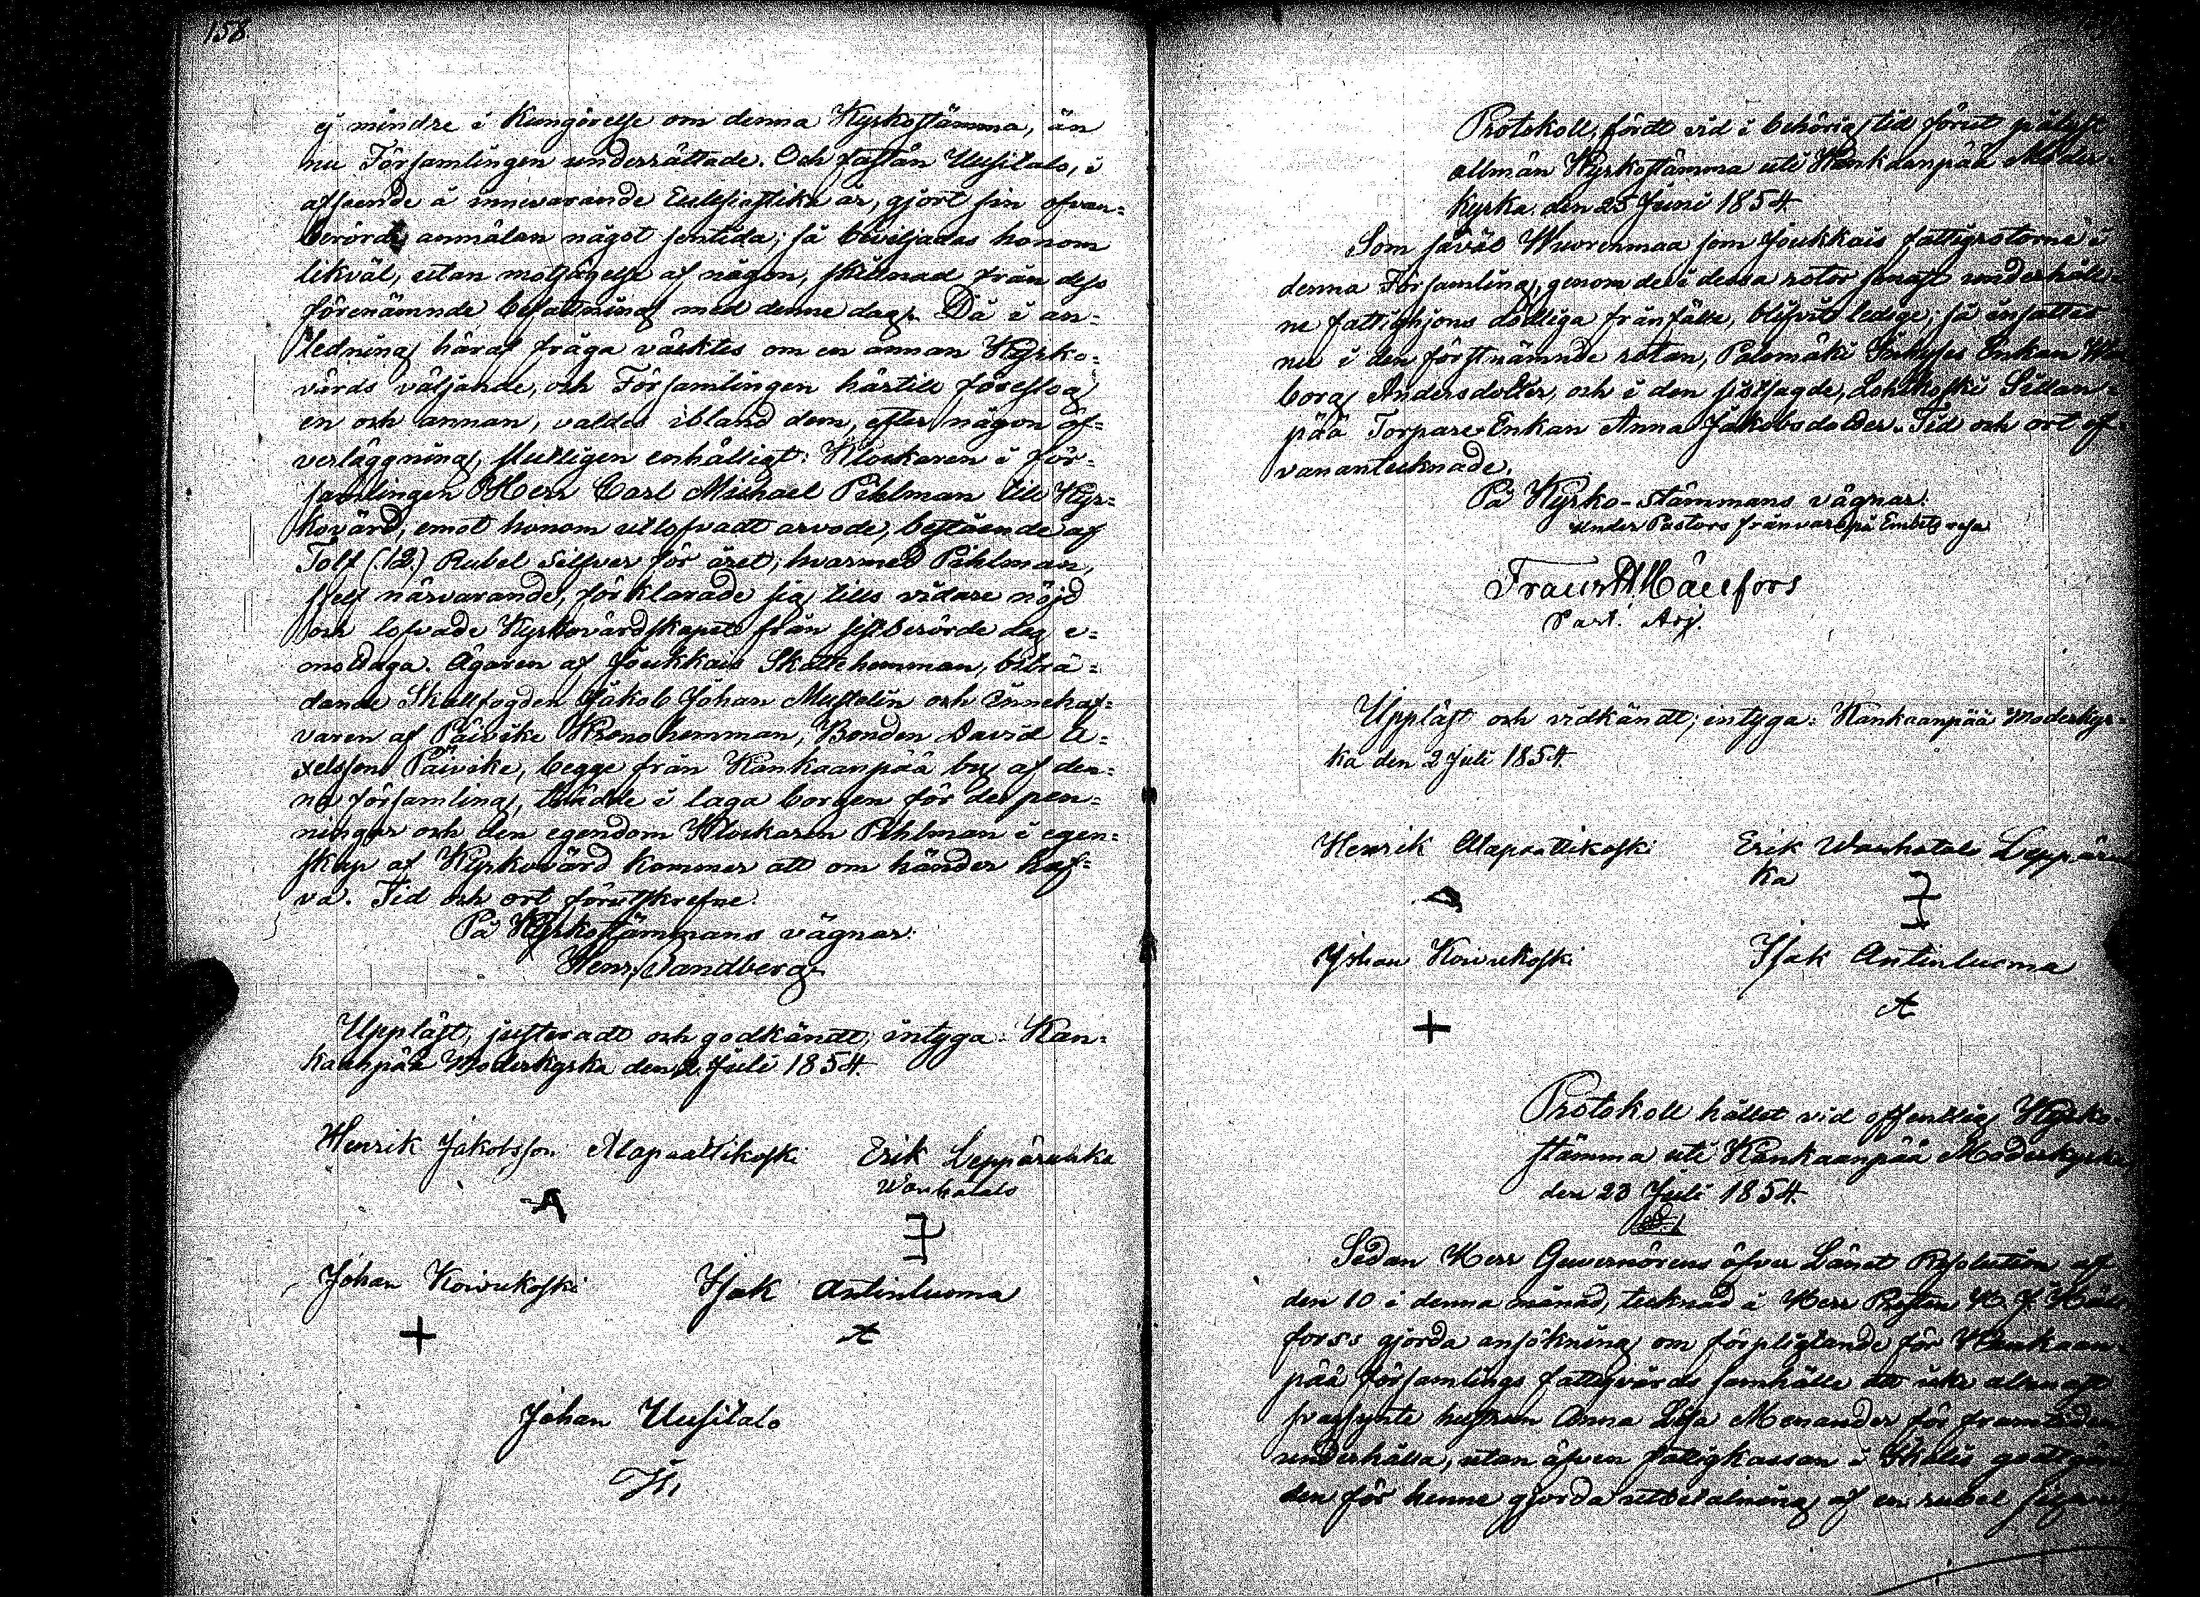 158.
ej mindre i Kungörelse om denna Kyrkostämma, än
nu Församlingen underrättade. Och fastän Uusitalo, i
afseende å innevarande Ecclesiastika år, gjort sin ofvan=
berörde anmälan något sentida; så beviljades honom
likväl, utan motsägelse af någon, skilnad från dess
förenämnde befattning med denne dag. Då i an=
ledning häraf fråga väcktes om en annan Kyrko=
värds väljande, och Församlingen härtill föreslog
en och annan, valdes ibland dem, efter någon öf=
verläggning, slutligen enhälligt: Klockaren i för=
samlingen Herr Carl Michael Pihlman till Kyr=
kovärd, emot honom utlofvadt arvode, bestående af
Tolf (12.) Rubel Silfver för året; hvarmed Pihlman,
sjelf närvarande, förklarade sig tills vidare nöjd
och lofvade Kyrkovärdskapet från sistberörde dag e=
mottaga. Ägaren af Joukkais Skattehemman, biträ=
dande Skallfogden Jakob Johan Mustelin och Innehaf=
varen af Päivike Kronohemman, Bonden David A=
xelsson Päivike, begge från Kankaanpää by af den=
na församling, trädde i laga borgen för de pen=
ningar och den egendom Klockaren Pihlman i egen=
skap af Kyrkovärd kommer att om händer haf=
va. Tid och ort förutskrefne.
På Kyrkostämmans vägnar:
Henr. Sandberg.
Uppläst, justeradt och godkändt, intyga: Kan=
kaanpää Moderkyrka den 2. Juli 1854.
Henrik Jakobsson Alapaattikoski Erik Leppäruhka
Wanhatalo
Johan Koivukoski Isak Antinluoma
+ A
Johan Uusitalo
Protokoll, fördt vid i behörig tid förut pålyst
allmän Kyrkostämma uti Kankaanpää Moder=
kyrka den 25 Juni 1854.
Som såväl Wuorenmaa som Joukkais fattigrotorne i
denna Församling, genom de i dessa rotor senast underhåll=
ne fattighjons dödliga frånfälle, blifvit ledige; så insattes
nu i den förstnämnde rotan, Palomäki Inhyses Enkan
borg Andersdotter, och i den sistsagde, Lohikoski Sillan=
pää Torpare Enkan Anna Jakobsdotter. Tid och ort of=
vanantecknade.
På Kyrko-stämmans vägnar:
under Pastors frånvaro på Embets resa
Hällfors
Past. Adj.
Uppläst och vidkändt; intyga: Kankaanpää Moderkyr=
ka den 2 Juli 1854.
Henrik Alapaattikoski Erik Wanhatalo Leppäru
ka
Johan Koivukoski Isak Antinluoma
+ A
Protokoll hållet vid offentlig Kyrko=
stämma uti Kankaanpää Moderkyrka
den 23 Juli 1854.
Sedan Herr Guvernörens öfver Länet Resolution af
den 10 i denna månad, tecknad å Herr Prosten H. J. Häll
forss gjorda ansökning om förpligtande för Kankaan=
pää församlings fattigvårds samhälle att icke allenast
svagsynte hustrun Anna Lisa Menander för framtiden
underhålla, utan äfven fattigkassan i Ikalis godtgöra
den för henne gjorda utbetalning af en rubel